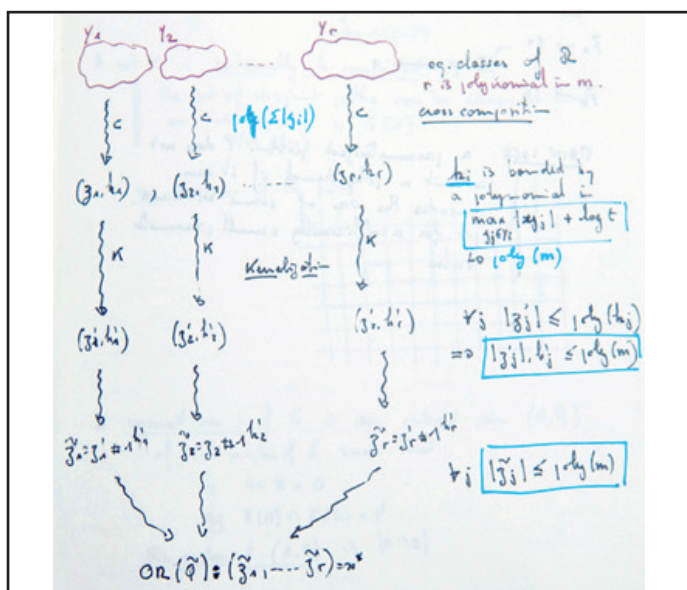 Y₁ Y₂ ..... Yᵣ
eq. classes of R
r is polynomial in m.
cross composition
c c poly(Σ|yᵢ|) c
(z₁, k₁) (z₂, k₂) ....... (zᵣ, kᵣ)
kⱼ is bounded by
a polynomial in
max |xyⱼ| + log t
to poly(m)
K K Kernelization K
(z'₁, k'₁) (z'₂, k'₂) (z'ᵣ, k'ᵣ)
∀j |z'ⱼ| ≤ poly(kⱼ)
=> |z'ⱼ|, k'ⱼ ≤ poly(m)
z̃₁=z'₁#1k'₁ z̃₂=z₂#1k'₂ z̃ᵣ=z'ᵣ#1k'ᵣ
∀j |z̃ⱼ| ≤ poly(m)
OR(Q̃): (z̃₁,.... z̃ᵣ)=x*